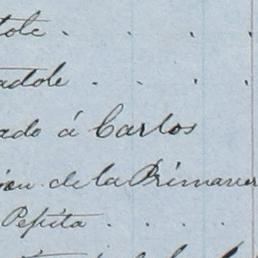 tole . . . .
adole . . . .
ado á Carlos
ion de la Primaver
Pepita . . . .